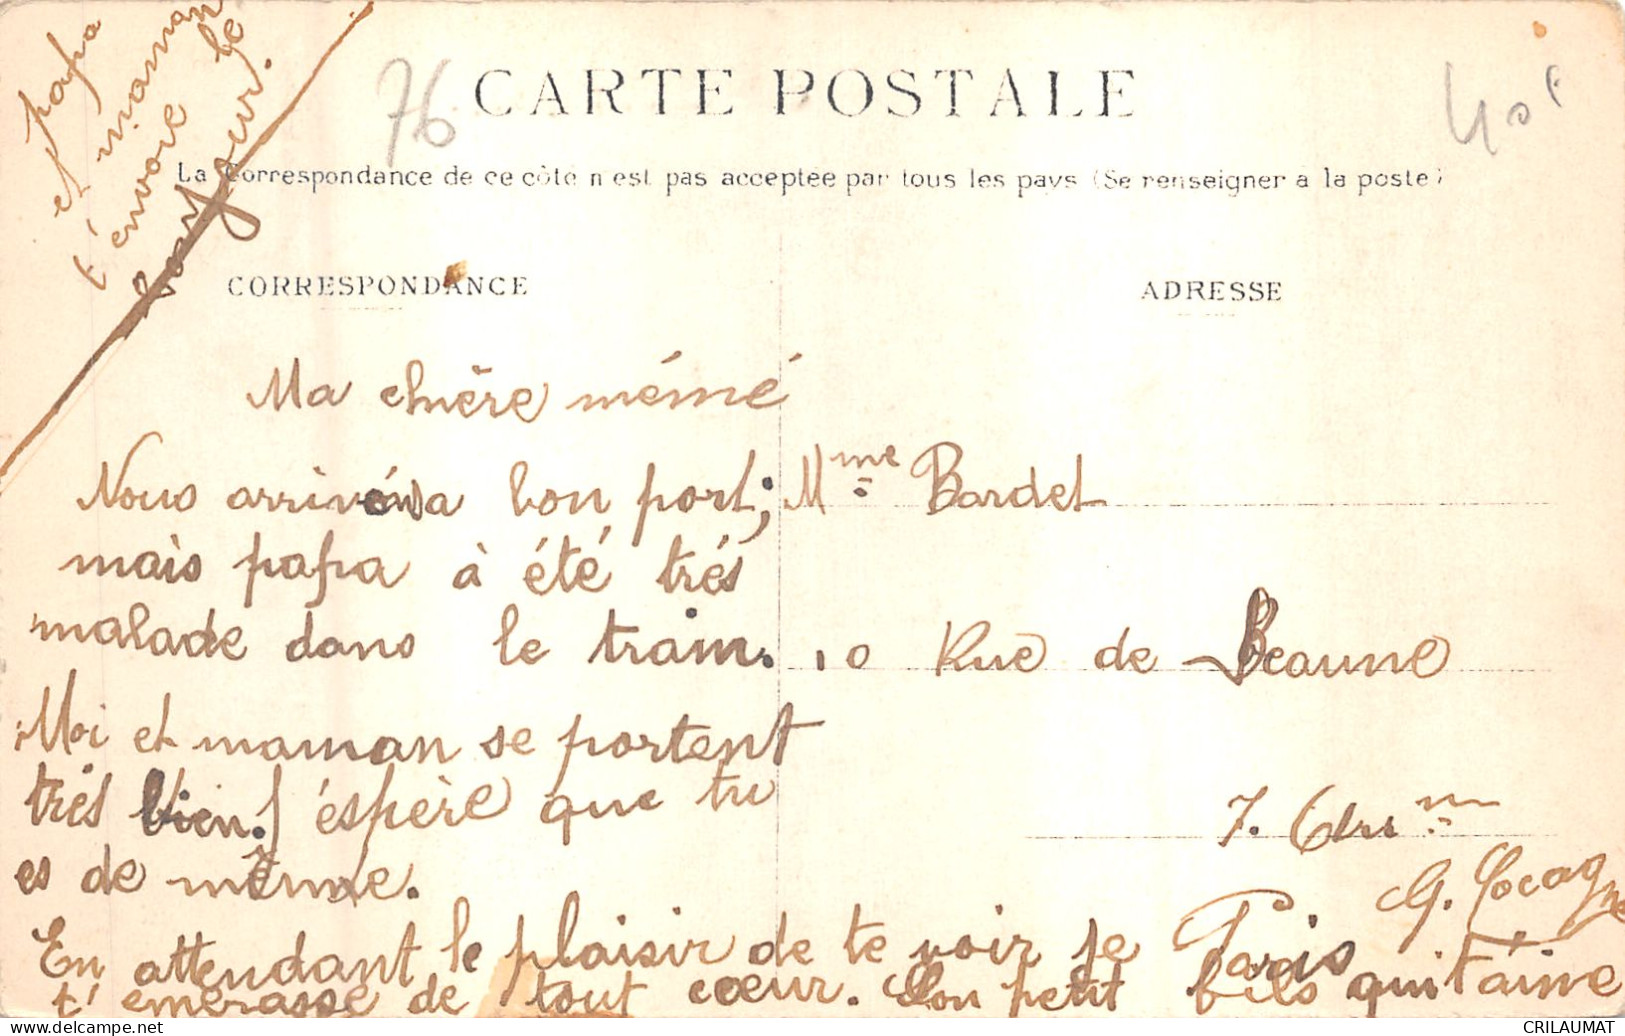 et papa
et maman
t'envoie le
bonjour.
76
CARTE POSTALE
40F
La Correspondance de ce côté n'est pas acceptée par tous les pays (Se renseigner à la poste)
CORRESPONDANCE
ADRESSE
Ma chère mémé
Nous arrivons a bon port;
mais papa à été trés
malade dans le train.
Moi et maman se portent
trés bien. J'éspère que tu
es de même.
En attendant le plaisir de te voir je
t'embrasse de tout coeur. Ton petit fils qui t'aime
G. Cocagne
Mme Bardet
10 Rue de Beaune
7.
Paris
CRILAUMAT